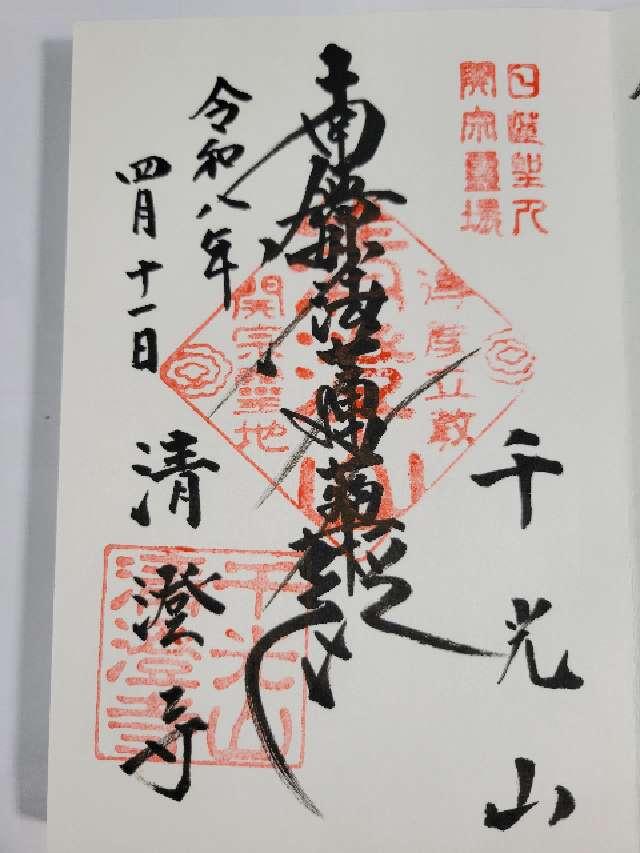 日蓮聖人
開宗霊場
千光山
南無妙法蓮華経
得度立教
清澄山
開宗聖地
令和八年
四月十一日
清澄寺
千光山
清澄寺